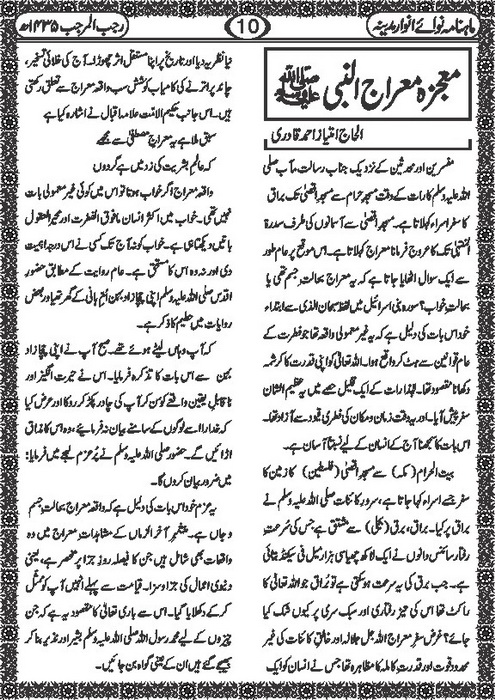 ماہنامہ نوائے انوار مدینہ
10
رجب المرجب ۱۴۳۵ھ
معجزہ معراج النبی ﷺ
الحاج امتیاز احمد قادری
مفسرین اور محدثین کے نزدیک جناب رسالت مآب صلی
اللہ علیہ وسلم کا رات کے وقت مسجد حرام سے مسجد اقصیٰ تک براق
کا سفر اسراء کہلاتا ہے۔ مسجد اقصیٰ سے آسمانوں کی طرف سدرۃ
المنتہیٰ تک کا عروج فرمانا معراج کہلاتا ہے۔ اس موقع پر عام طور
سے ایک سوال اٹھایا جاتا ہے کہ یہ معراج بحالت جسم تھی یا
بحالت خواب؟ سورہ بنی اسرائیل میں لفظ سبحان الذی سے ابتداء
خود اس بات کی دلیل ہے کہ یہ غیر معمولی واقعہ تھا جو فطرت کے
عام قوانین سے ہٹ کر واقع ہوا۔ اللہ تعالیٰ کو اپنی قدرت کا کرشمہ
دکھانا مقصود تھا۔ لہٰذا رات کے ایک قلیل حصے میں یہ عظیم الشان
سفر پیش آیا۔ اور یہ وقت زمان و مکان کی فطری قیود سے آزاد تھا۔
اس بات کا سمجھنا آج کے انسان کے لیے نسبتاً آسان ہے۔
بیت الحرام (مکہ) سے مسجد اقصیٰ (فلسطین) کا زمین کا
سفر جسے اسراء کہا جاتا ہے، سرور کائنات صلی اللہ علیہ وسلم نے
براق پر کیا۔ براق، برق (بجلی) سے مشتق ہے جس کی سرعت
رفتار سائنس دانوں نے ایک لاکھ چھیاسی ہزار میل فی سیکنڈ بتائی
ہے۔ جب برق کی یہ سرعت ہو سکتی ہے تو براق جو اللہ تعالیٰ کا
راکٹ تھا اس کی تیز رفتاری اور سبک سری پر کیوں شک کیا
جائے؟ غرض سفر معراج اللہ جل جلالہ اور خالق کائنات کی غیر
محدود قوت اور قدرت کاملہ کا مظاہرہ تھا جس نے انسان کو ایک
نیا نظریہ دیا اور تاریخ پر اپنا مستقل اثر چھوڑا۔ آج کی خلائی تسخیر،
چاند پر اترنے کی کامیاب کوشش سب واقعہ معراج سے تعلق رکھتی
ہیں۔ اس جانب حکیم الامت علامہ اقبال نے اشارہ کیا ہے
سبق ملا ہے یہ معراج مصطفیٰ سے مجھے
کہ عالم بشریت کی زد میں ہے گردوں
واقعہ معراج اگر خواب ہوتا تو اس میں کوئی غیر معمولی بات
نہیں تھی۔ خواب میں اکثر انسان مافوق الفطرت اور محیر العقول
باتیں دیکھتا ہی ہے۔ خواب کو نہ آج تک کسی نے اس درجہ اہمیت
دی اور نہ وہ اس کا مستحق ہے۔ عام روایت کے مطابق حضور
اقدس صلی اللہ علیہ وسلم اپنی چچا زاد بہن اُم ہانی کے گھر تھے اور بعض
روایات میں حطیم کا ذکر ہے۔
کہ آپ وہاں لیٹے ہوئے تھے۔ صبح آپ نے اپنی چچا زاد
بہن سے اس بات کا تذکرہ فرمایا۔ اس نے حیرت انگیز اور
ناقابل یقین واقعے کو سن کر آپ کی چادر پکڑ کر روکا اور عرض کیا
کہ خدارا اسے لوگوں کے سامنے بیان نہ فرمایئے، وہ اس کا مذاق
اڑائیں گے۔ حضور صلی اللہ علیہ وسلم نے پُر عزم لہجے میں فرمایا:
میں ضرور بیان کروں گا۔
یہ عزم خود اس بات کی دلیل ہے کہ واقعہ معراج بحالت جسم
و جاں ہے۔ پیغمبر آخر الزماں کے مشاہدات معراج میں وہ
واقعات بھی شامل ہیں جن کا فیصلہ روز جزا پر منحصر ہے، یعنی
دنیوی اعمال کی جزا و سزا۔ قیامت سے پہلے انہیں آپ کو ممثّل
کر کے دکھلایا گیا۔ اس سے باری تعالیٰ کا مقصود یہ ہے کہ جن
چیزوں کے لیے محمد رسول اللہ صلی اللہ علیہ وسلم بشیر اور نذیر بنا کر
بھیجے گئے ہیں ان کے عینی گواہ بن جائیں۔